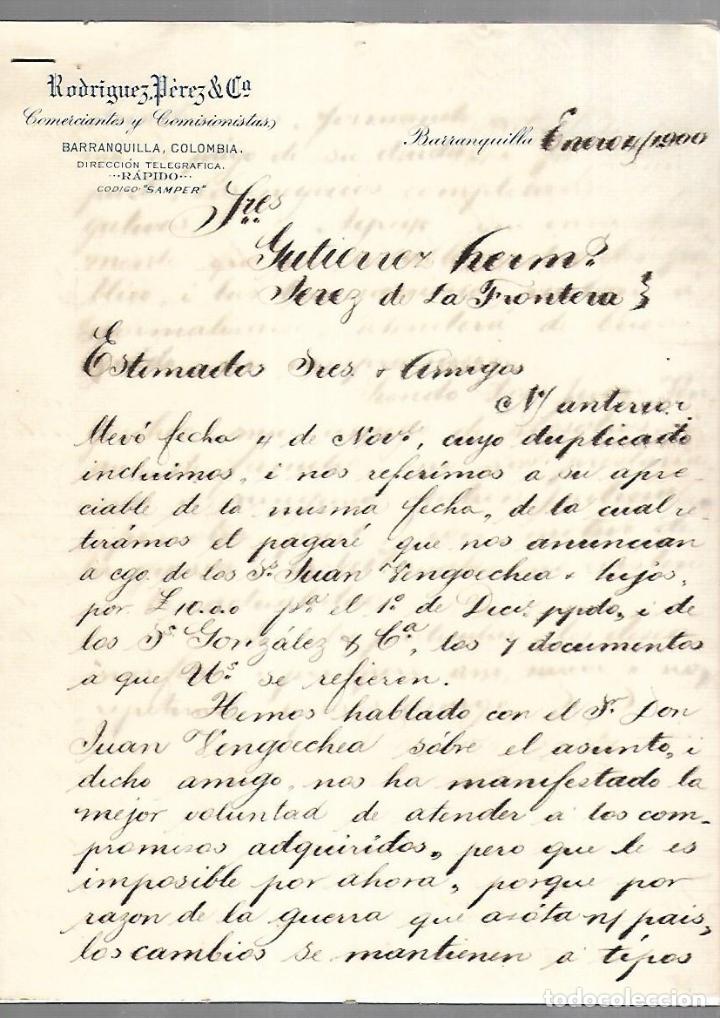 Rodriguez, Pérez & Cª
Comerciantes y Comisionistas,
BARRANQUILLA, COLOMBIA.
DIRECCIÓN TELEGRAFICA.
···RÁPIDO···
CODIGO "SAMPER"
Barranquilla Enero 4/1900
Sres
Gutierrez herms
Jerez de La Frontera
Estimados Sres. & Amigos
N/ anterior
llevó fecha 4 de Nove, cuyo duplicado
incluimos, i nos referimos a su apre-
ciable de la misma fecha, de la cual re-
tirámos el pagaré que nos anuncian
a cgo. de los Srs. Juan Vengoechea & hijos,
por £10.0.0 pª el 1º de Dice. ppdo, i de
los Srs González & Cª, los 7 documentos
á que Us. se refieren.
Hemos hablado con el Sr. Don
Juan Vengoechea sóbre el asunto, i
dicho amigo, nos ha manifestado la
mejor voluntad de atender á los com-
promisos adquiridos, pero que le es
imposible por ahora, porque por
razon de la guerra que asóta n/ pais,
los cambios se mantienen a típos
todocoleccion.net